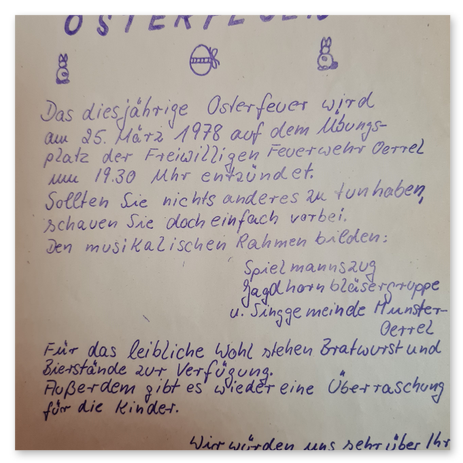 OSTERFEUER
Das diesjährige Osterfeuer wird
am 25. März 1978 auf dem Übungs-
platz der Freiwilligen Feuerwehr Oerrel
um 19.30 Uhr entzündet.
Sollten Sie nichts anderes zu tun haben,
schauen Sie doch einfach vorbei.
Den musikalischen Rahmen bilden:
Spielmannszug
Jagdhornbläsergruppe
u. Singgemeinde Munster-
Oerrel
Für das leibliche Wohl stehen Bratwurst und
Bierstände zur Verfügung.
Außerdem gibt es wieder eine Überraschung
für die Kinder.
Wir würden uns sehr über Ihr